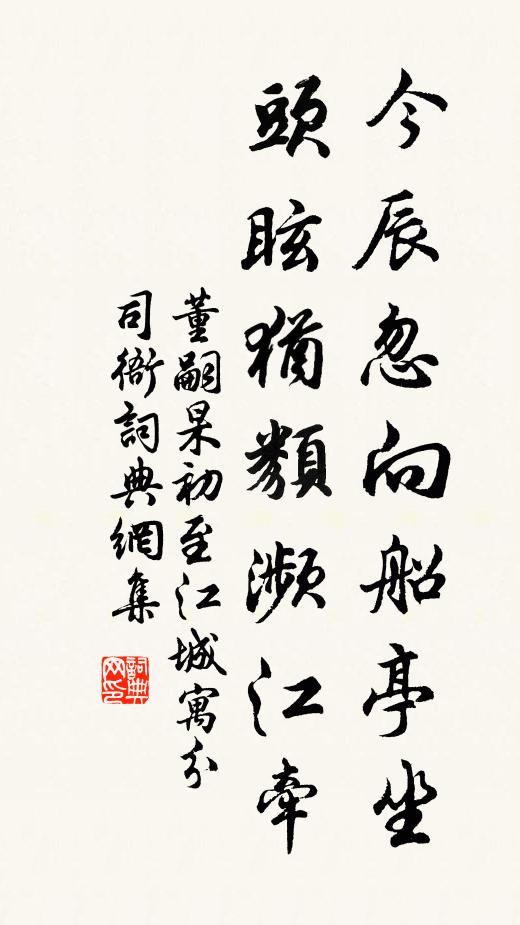 今辰忽向船亭坐
頭眩猶類瀕江牽
董嗣杲初至江城寓分
司衙詞典網集
詞典网印